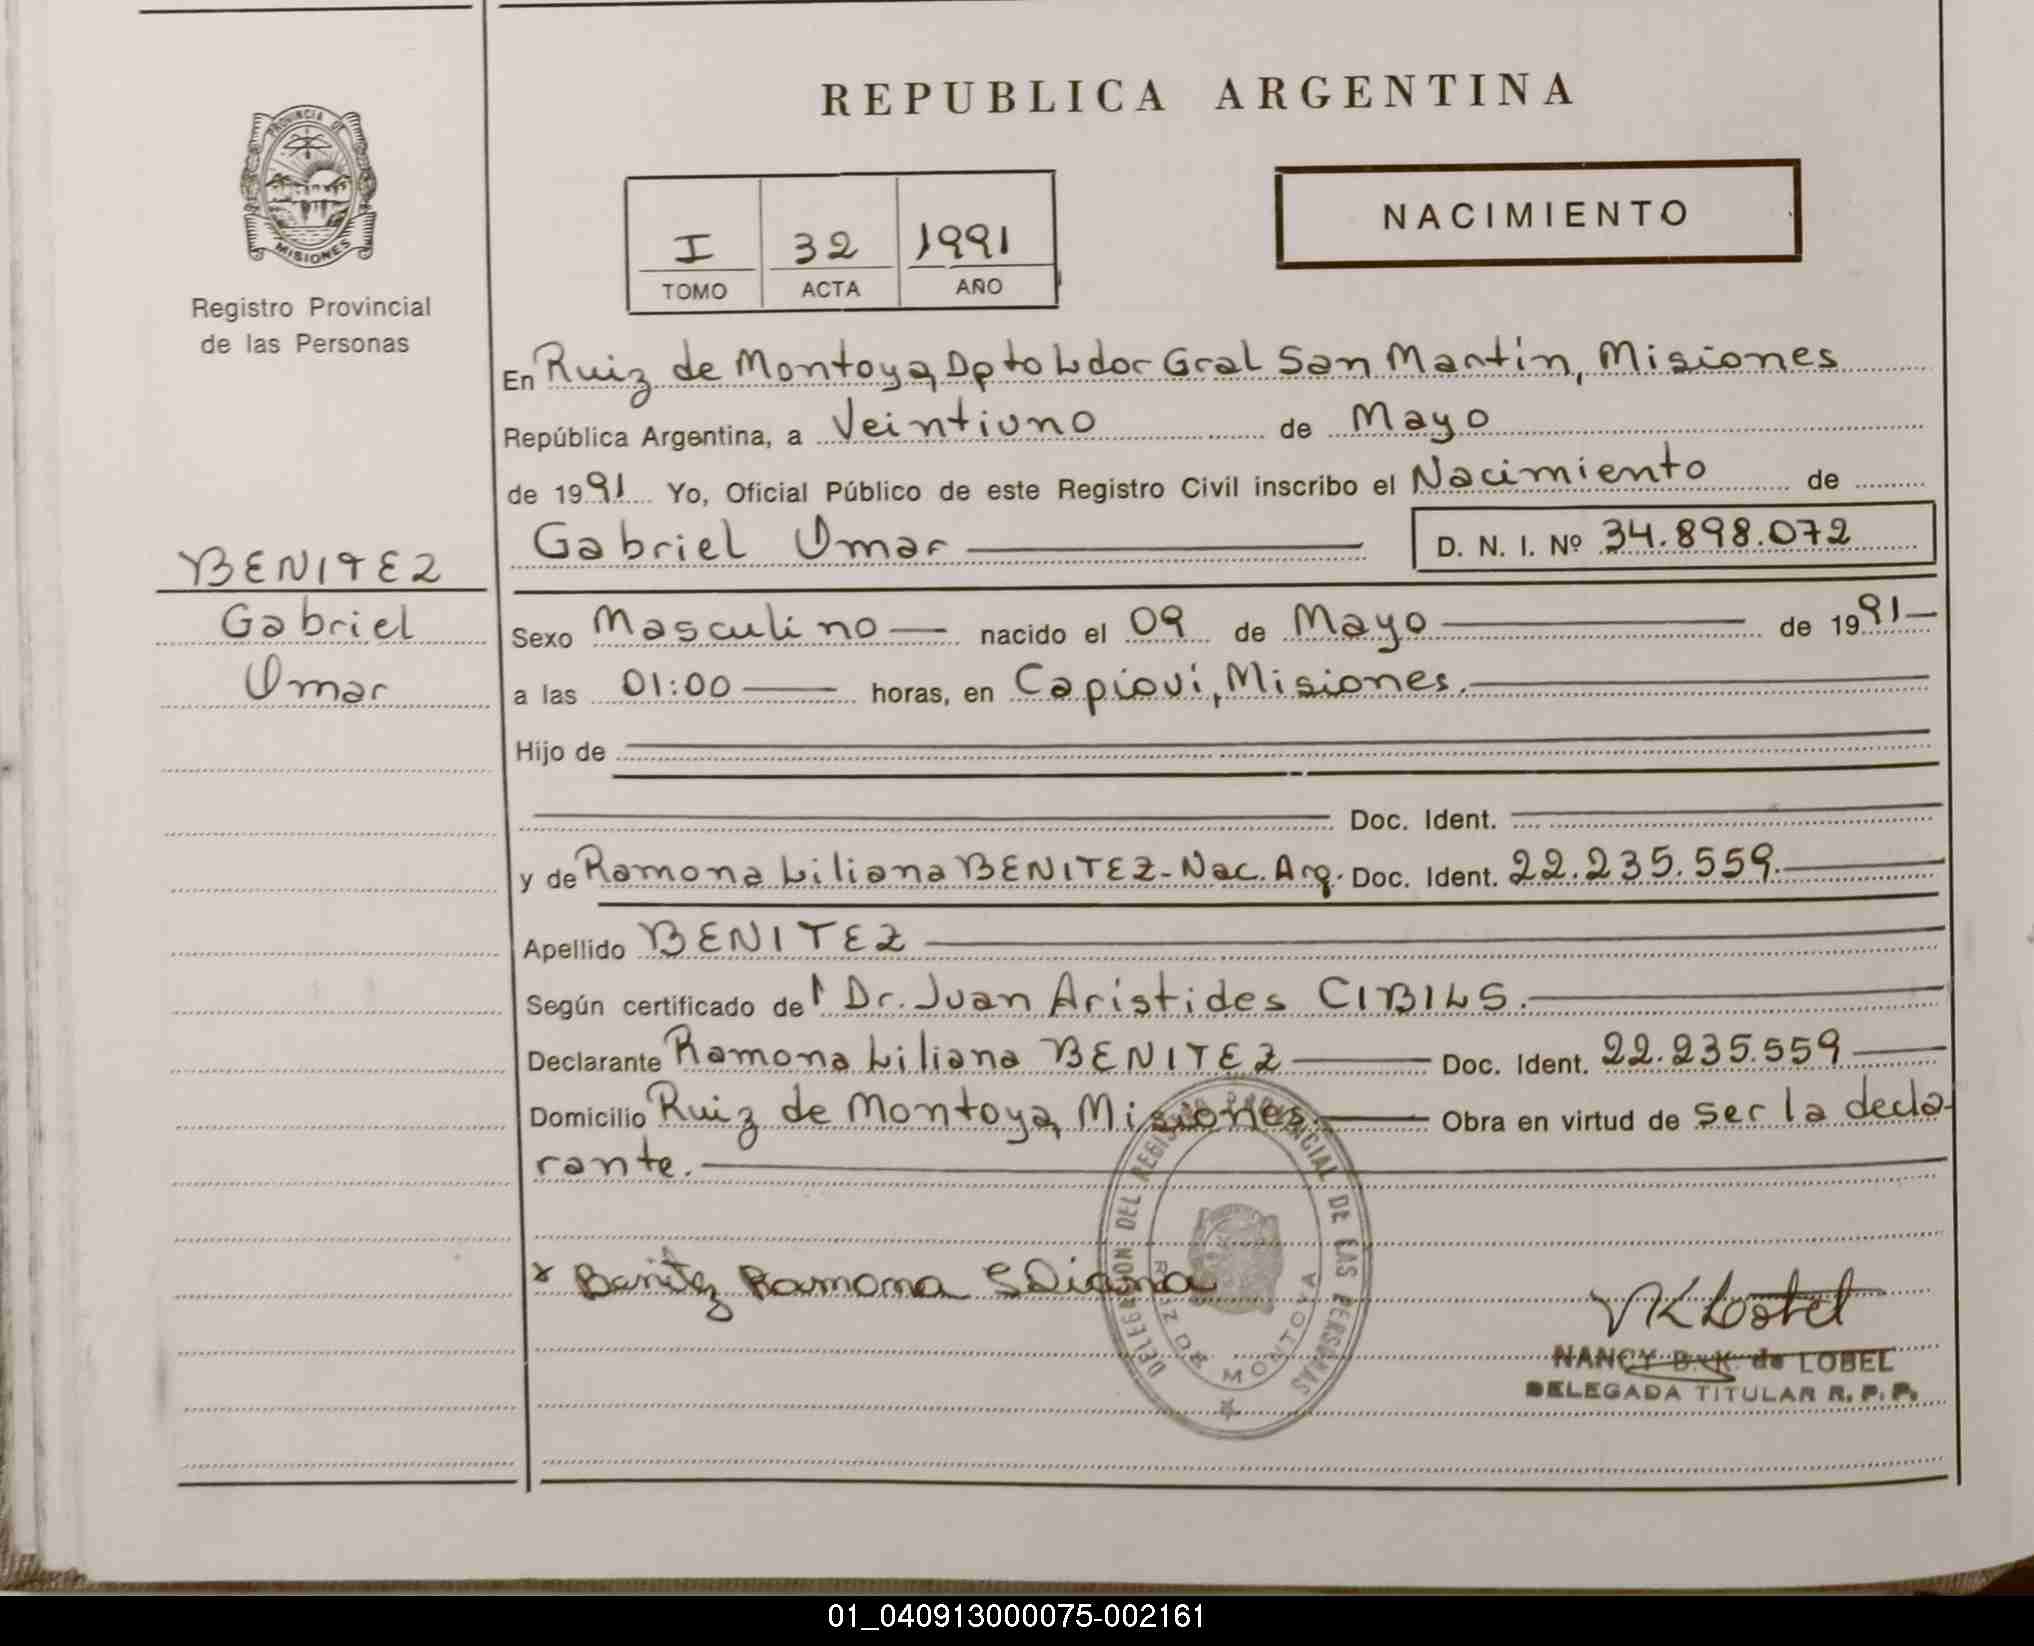 REPUBLICA ARGENTINA
PROVINCIA DE
MISIONES
Registro Provincial
de las Personas
I 32 1991
TOMO ACTA AÑO
NACIMIENTO
En Ruiz de Montoya, Dpto Ldor Gral San Martin, Misiones
República Argentina, a Veintiuno de Mayo
de 1991 Yo, Oficial Público de este Registro Civil inscribo el Nacimiento de
Gabriel Omar D. N. I. Nº 34.898.072
BENITEZ
Gabriel
Omar
Sexo Masculino nacido el 09 de Mayo de 1991
a las 01:00 horas, en Capiovi, Misiones.
Hijo de
Doc. Ident.
y de Ramona Liliana BENITEZ - Nac. Arg. Doc. Ident. 22.235.559.
Apellido BENITEZ
Según certificado del Dr. Juan Aristides CIBILS.
Declarante Ramona Liliana BENITEZ Doc. Ident. 22.235.559
Domicilio Ruiz de Montoya, Misiones. Obra en virtud de ser la decla-
rante.
DELEGACION DEL REGISTRO PROVINCIAL DE LAS PERSONAS
RUIZ DE MONTOYA
x Benitez Ramona
NANCY B. K. de LOBEL
DELEGADA TITULAR R. P. P.
01_040913000075-002161